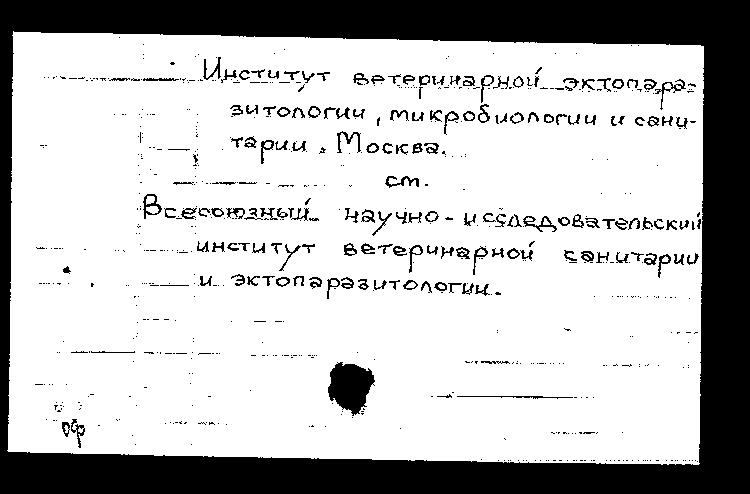 Институт ветеринарной эктопара-
зитологии, микробиологии и сани-
тарии. Москва.
см.
Всесоюзный научно-исследовательский
институт ветеринарной санитарии
и эктопаразитологии.